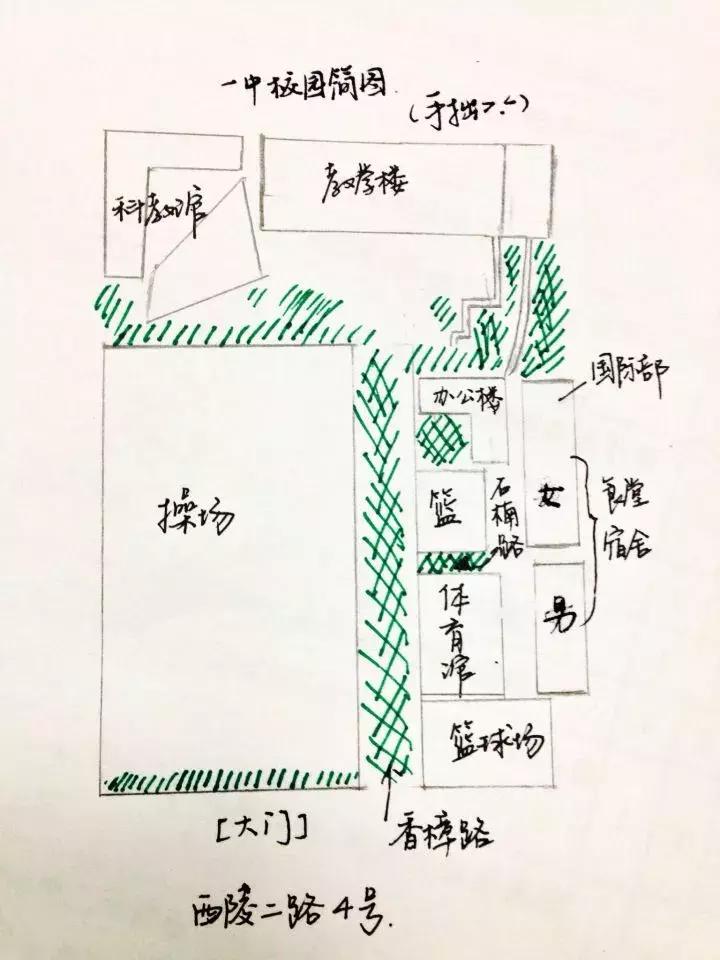 一中校园简图
(手拙>.<)
科教馆
教学楼
国际部
办公楼
操场
篮
石楠路
女
食堂
宿舍
体育馆
男
篮球场
[大门]
香樟路
西陵二路4号.